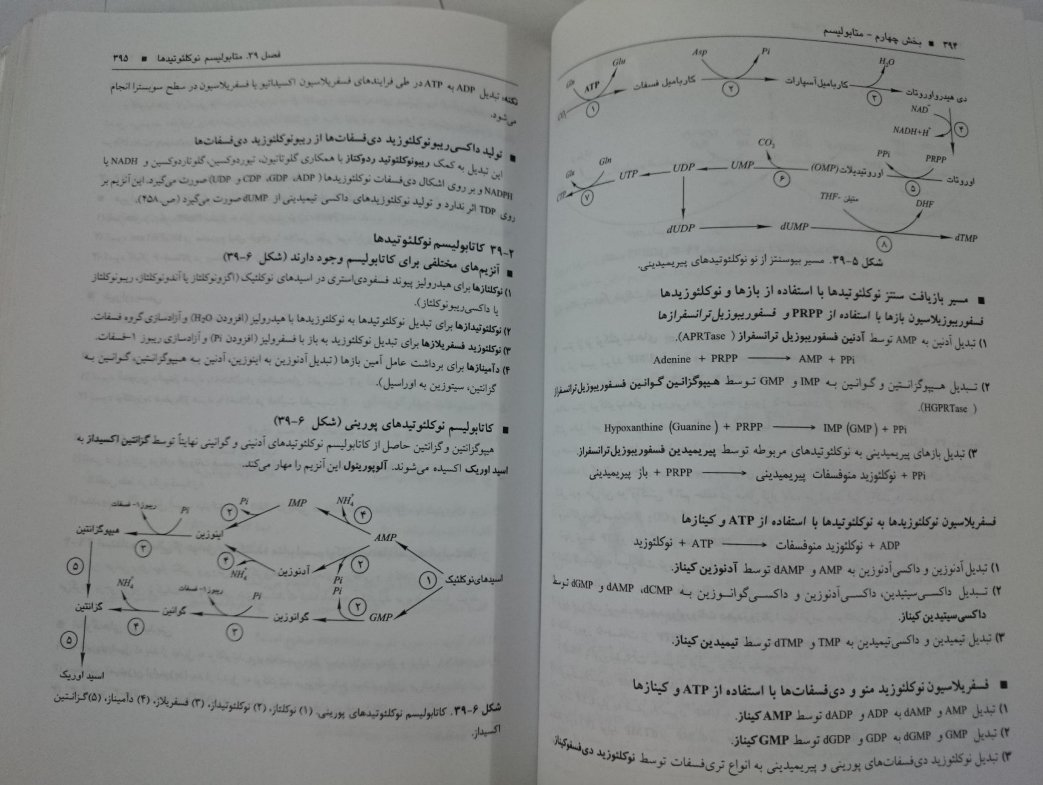 ۳۹۴ ■ بخش چهارم – متابولیسم
Gln
Asp
Pi
H₂O
ATP
کاربامیل فسفات
کاربامیل‌آسپارات
دی هیدرواوروتات
۱
۲
۳
NAD⁺
NADH+H⁺
۴
CO₂
PPi
PRPP
Gln
UTP
UDP
UMP
اوروتیدیلات (OMP)
اوروتات
۷
۶
۵
متیلن THF-
DHF
dUDP
dUMP
dTMP
۸
شکل ۵-۳۹. مسیر بیوسنتز از نو نوکلئوتیدهای پیریمیدینی.
■ مسیر بازیافت سنتز نوکلئوتیدها با استفاده از بازها و نوکلئوزیدها
فسفوریبوزیلاسیون بازها با استفاده از PRPP و فسفوریبوزیل‌ترانسفرازها
۱) تبدیل آدنین به AMP توسط آدنین فسفوریبوزیل ترانسفراز ( APRTase).
Adenine + PRPP ⟶ AMP + PPi
۲) تبدیل هیپوگزانتین و گوانین به IMP و GMP توسط هیپوگزانتین گوانین فسفوریبوزیل‌ترانسفراز
( HGPRTase).
Hypoxanthine (Guanine) + PRPP ⟶ IMP (GMP) + PPi
۳) تبدیل بازهای پیریمیدینی به نوکلئوتیدهای مربوطه توسط پیریمیدین فسفوریبوزیل‌ترانسفراز.
باز پیریمیدینی + PRPP ⟶ نوکلئوزید منوفسفات پیریمیدینی + PPi
فسفریلاسیون نوکلئوزیدها به نوکلئوتیدها با استفاده از ATP و کینازها
نوکلئوزید + ATP ⟶ نوکلئوزید منوفسفات + ADP
۱) تبدیل آدنوزین و داکسی‌آدنوزین به AMP و dAMP توسط آدنوزین کیناز.
۲) تبدیل داکسی‌سیتدین، داکسی‌آدنوزین و داکسی‌گوانوزین به dCMP، dAMP و dGMP توسط
داکسی‌سیتیدین کیناز.
۳) تبدیل تیمیدین و داکسی‌تیمیدین به TMP و dTMP توسط تیمیدین کیناز.
■ فسفریلاسیون نوکلئوزید منو و دی‌فسفات‌ها با استفاده از ATP و کینازها
۱) تبدیل AMP و dAMP به ADP و dADP توسط AMP کیناز.
۲) تبدیل GMP و dGMP به GDP و dGDP توسط GMP کیناز.
۳) تبدیل نوکلئوزید دی‌فسفات‌های پورینی و پیریمیدینی به انواع تری‌فسفات توسط نوکلئوزید دی‌فسفوکیناز
فصل ۳۹. متابولیسم نوکلئوتیدها ■ ۳۹۵
نکته: تبدیل ADP به ATP در طی فرایندهای فسفریلاسیون اکسیداتیو یا فسفریلاسیون در سطح سوبسترا انجام
می‌شود.
■ تولید داکسی‌ریبونوکلئوزید دی‌فسفات‌ها از ریبونوکلئوزید دی‌فسفات‌ها
این تبدیل به کمک ریبونوکلئوتید ردوکتاز با همکاری گلوتاتیون، تیوردوکسین، گلوتاردوکسین و NADH یا
NADPH و بر روی اشکال دی‌فسفات نوکلئوزیدها ( ADP، GDP، CDP و UDP) صورت می‌گیرد. این آنزیم بر
روی TDP اثر ندارد و تولید نوکلئوزیدهای داکسی تیمیدینی از dUMP صورت می‌گیرد (ص.۴۵۸).
۲-۳۹ کاتابولیسم نوکلئوتیدها
■ آنزیم‌های مختلفی برای کاتابولیسم وجود دارند (شکل ۶-۳۹)
۱) نوکلئازها برای هیدرولیز پیوند فسفودی‌استری در اسیدهای نوکلئیک (اگزونوکلئاز یا اندونوکلئاز، ریبونوکلئاز
یا داکسی‌ریبونوکلئاز).
۲) نوکلئوتیدازها برای تبدیل نوکلئوتیدها به نوکلئوزیدها با هیدرولیز (افزودن H₂O) و آزادسازی گروه فسفات.
۳) نوکلئوزید فسفریلازها برای تبدیل نوکلئوزید به باز با فسفرولیز (افزودن Pi) و آزادسازی ریبوز ۱-فسفات.
۴) دآمینازها برای برداشت عامل آمین بازها (تبدیل آدنوزین به اینوزین، آدنین به هیپوگزانتین، گوانین به
گزانتین، سیتوزین به اوراسیل).
■ کاتابولیسم نوکلئوتیدهای پورینی (شکل ۶-۳۹)
هیپوگزانتین و گزانتین حاصل از کاتابولیسم نوکلئوتیدهای آدنینی و گوانینی نهایتاً توسط گزانتین اکسیداز به
اسید اوریک اکسیده می‌شوند. آلوپورینول این آنزیم را مهار می‌کند.
ریبوز۱- فسفات
Pi
Pi
NH₄⁺
IMP
۴
هیپوگزانتین
۳
اینوزین
۲
AMP
۵
NH₄⁺
۴
آدنوزین
۲
Pi
Pi
۱
اسیدهای‌نوکلئیک
NH₄⁺
ریبوز۱- فسفات
Pi
گزانتین
۴
گوانین
۳
گوانوزین
۲
GMP
۵
اسید اوریک
شکل ۶-۳۹. کاتابولیسم نوکلئوتیدهای پورینی. (۱) نوکلئاز، (۲) نوکلئوتیداز، (۳) فسفریلاز، (۴) دآمیناز، (۵)گزانتین
اکسیداز.